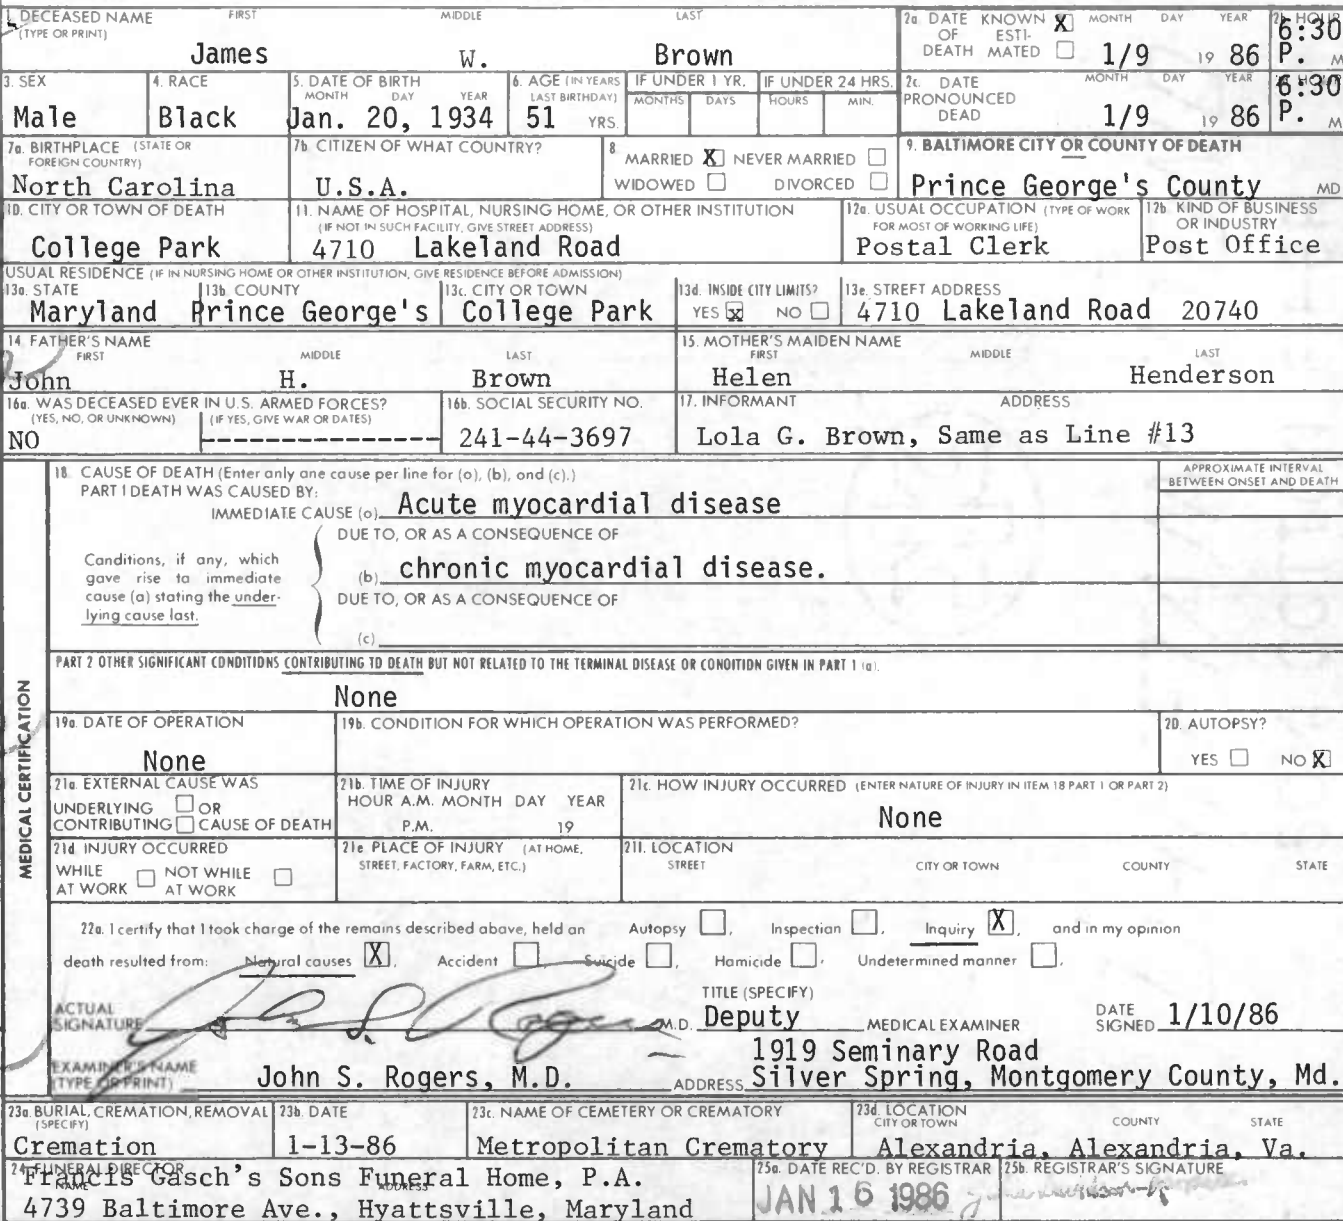 1. DECEASED NAME FIRST MIDDLE LAST
(TYPE OR PRINT)
James W. Brown
2a. DATE KNOWN X MONTH DAY YEAR 2b. HOUR
OF ESTI-
DEATH MATED 1/9 19 86 6:30 P. M
3. SEX
Male
4. RACE
Black
5. DATE OF BIRTH
MONTH DAY YEAR
Jan. 20, 1934
6. AGE (IN YEARS
LAST BIRTHDAY)
51 YRS.
IF UNDER 1 YR.
MONTHS DAYS
IF UNDER 24 HRS.
HOURS MIN.
2c. DATE MONTH DAY YEAR
PRONOUNCED
DEAD 1/9 19 86 6:30 P. M
7a. BIRTHPLACE (STATE OR
FOREIGN COUNTRY)
North Carolina
7b. CITIZEN OF WHAT COUNTRY?
U.S.A.
8
MARRIED X NEVER MARRIED
WIDOWED DIVORCED
9. BALTIMORE CITY OR COUNTY OF DEATH
Prince George's County MD
10. CITY OR TOWN OF DEATH
College Park
11. NAME OF HOSPITAL, NURSING HOME, OR OTHER INSTITUTION
(IF NOT IN SUCH FACILITY, GIVE STREET ADDRESS)
4710 Lakeland Road
12a. USUAL OCCUPATION (TYPE OF WORK
FOR MOST OF WORKING LIFE)
Postal Clerk
12b. KIND OF BUSINESS
OR INDUSTRY
Post Office
USUAL RESIDENCE (IF IN NURSING HOME OR OTHER INSTITUTION, GIVE RESIDENCE BEFORE ADMISSION)
13a. STATE
Maryland
13b. COUNTY
Prince George's
13c. CITY OR TOWN
College Park
13d. INSIDE CITY LIMITS?
YES X NO
13e. STREET ADDRESS
4710 Lakeland Road 20740
14. FATHER'S NAME
FIRST MIDDLE LAST
John H. Brown
15. MOTHER'S MAIDEN NAME
FIRST MIDDLE LAST
Helen Henderson
16a. WAS DECEASED EVER IN U.S. ARMED FORCES?
(YES, NO, OR UNKNOWN) (IF YES, GIVE WAR OR DATES)
NO -----------------
16b. SOCIAL SECURITY NO.
241-44-3697
17. INFORMANT ADDRESS
Lola G. Brown, Same as Line #13
MEDICAL CERTIFICATION
18. CAUSE OF DEATH (Enter only one cause per line for (a), (b), and (c).)
APPROXIMATE INTERVAL
BETWEEN ONSET AND DEATH
PART I DEATH WAS CAUSED BY:
IMMEDIATE CAUSE (a) Acute myocardial disease
DUE TO, OR AS A CONSEQUENCE OF
Conditions, if any, which
gave rise to immediate
cause (a) stating the under-
lying cause last.
(b) chronic myocardial disease.
DUE TO, OR AS A CONSEQUENCE OF
(c)
PART 2 OTHER SIGNIFICANT CONDITIONS CONTRIBUTING TO DEATH BUT NOT RELATED TO THE TERMINAL DISEASE OR CONDITION GIVEN IN PART 1 (a).
None
19a. DATE OF OPERATION
None
19b. CONDITION FOR WHICH OPERATION WAS PERFORMED?
20. AUTOPSY?
YES NO X
21a. EXTERNAL CAUSE WAS
UNDERLYING OR
CONTRIBUTING CAUSE OF DEATH
21b. TIME OF INJURY
HOUR A.M. MONTH DAY YEAR
P.M. 19
21c. HOW INJURY OCCURRED (ENTER NATURE OF INJURY IN ITEM 18 PART 1 OR PART 2)
None
21d. INJURY OCCURRED
WHILE AT WORK NOT WHILE AT WORK
21e. PLACE OF INJURY (AT HOME,
STREET, FACTORY, FARM, ETC.)
21f. LOCATION
STREET CITY OR TOWN COUNTY STATE
22a. I certify that I took charge of the remains described above, held an Autopsy , Inspection , Inquiry X , and in my opinion
death resulted from: Natural causes X , Accident , Suicide , Homicide , Undetermined manner .
ACTUAL
SIGNATURE John S. Rogers M.D.
TITLE (SPECIFY)
Deputy MEDICAL EXAMINER
DATE
SIGNED 1/10/86
EXAMINER'S NAME
(TYPE OR PRINT) John S. Rogers, M.D.
1919 Seminary Road
ADDRESS Silver Spring, Montgomery County, Md.
23a. BURIAL, CREMATION, REMOVAL
(SPECIFY)
Cremation
23b. DATE
1-13-86
23c. NAME OF CEMETERY OR CREMATORY
Metropolitan Crematory
23d. LOCATION
CITY OR TOWN COUNTY STATE
Alexandria, Alexandria, Va.
24. FUNERAL DIRECTOR
NAME ADDRESS
Francis Gasch's Sons Funeral Home, P.A.
4739 Baltimore Ave., Hyattsville, Maryland
25a. DATE REC'D. BY REGISTRAR
JAN 16 1986
25b. REGISTRAR'S SIGNATURE